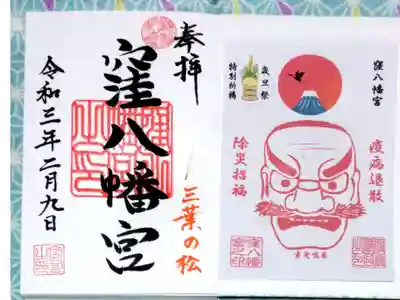 奉拝
窪八幡宮
三葉の松
令和三年二月九日
窪八幡宮
歳旦祭
特別祈祷
疫病退散
除災招福